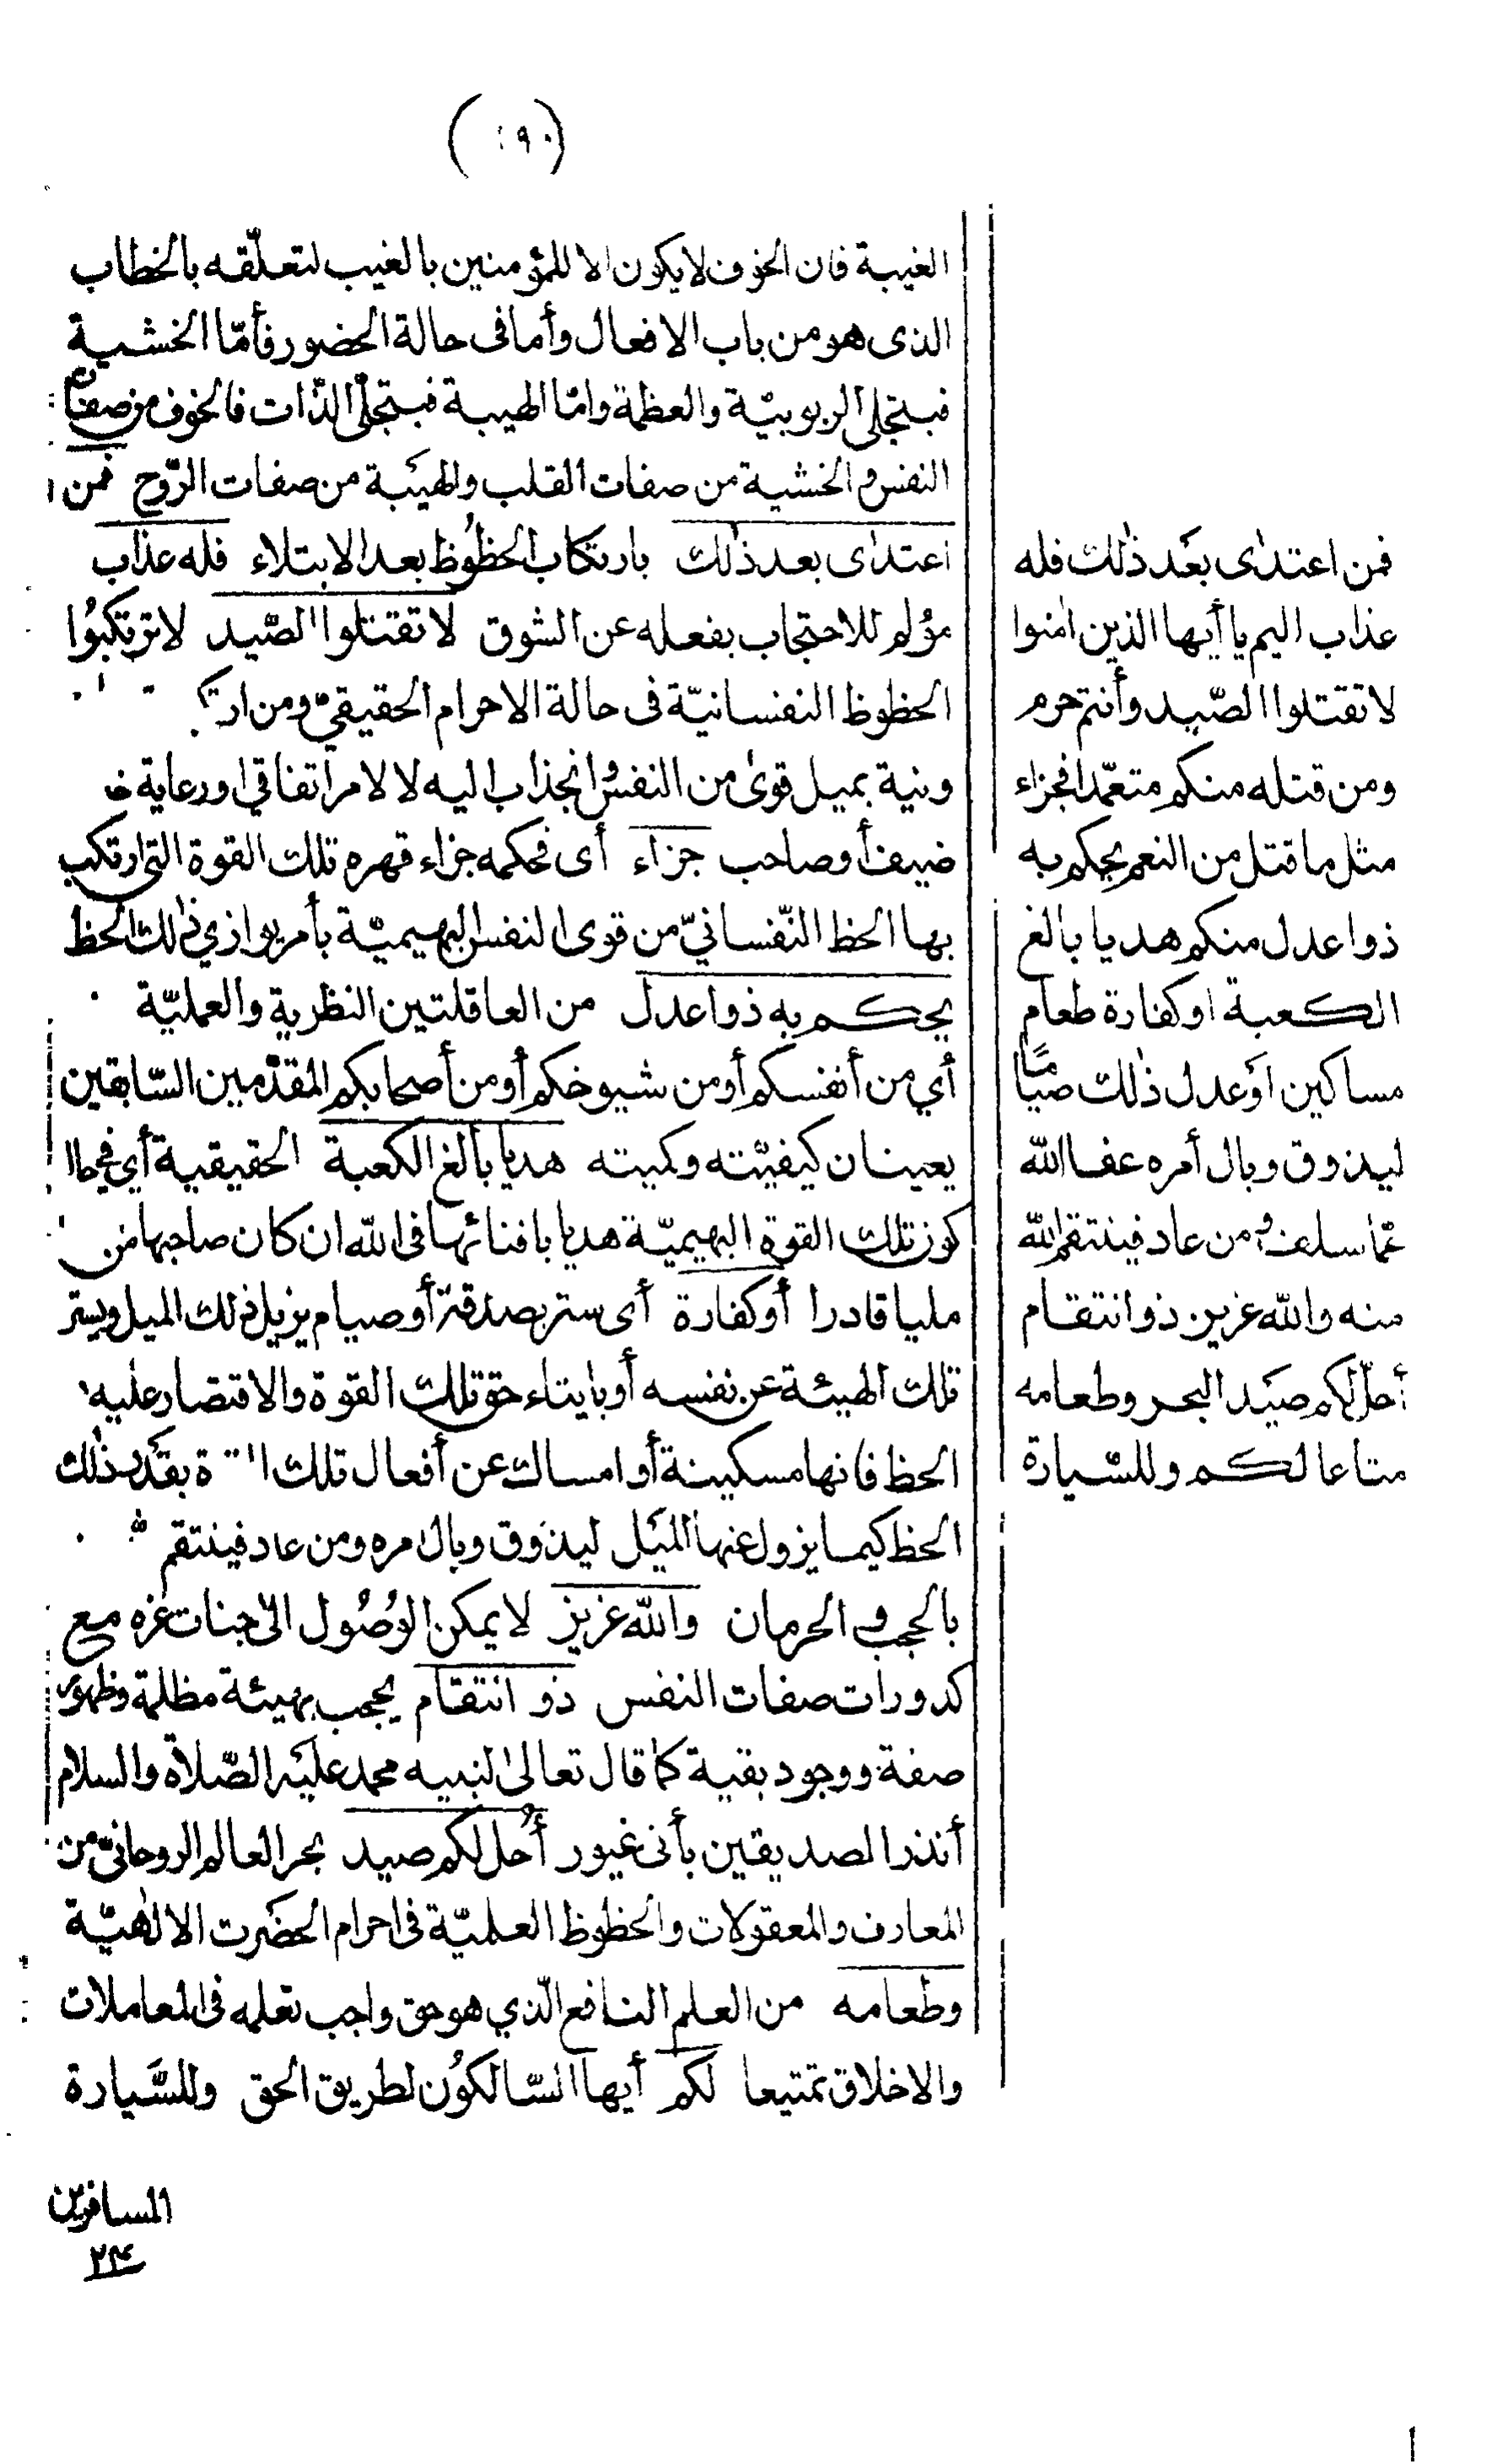 (١٩٠)
فمن اعتدٰى بعَد ذٰلك فله
عذاب اليم يا أيها الذين اٰمنوا
لا تقتلوا الصّيد وأنتم حرم
ومن قتله منكم متعمّدا فجزاء
مثل ما قتل من النعم يحكم به
ذوا عدل منكم هديا بالغ
الكعبة او كفارة طعام
مساكين اوَعدل ذٰلك صيامًا
ليذوق وبال أمره عفا اللّه
عمّا سلف ومن عاد فينتقم اللّه
منه واللّه عزيز ذو انتقام
أحلّ لكم صيَد البحر وطعامه
متاعا لكم وللسّيارة
الغيبة فان الخوف لا يكون الا للمؤمنين بالغيب لتعلّقه بالخطاب
الذى هو من باب الافعال وأما فى حالة الحضور فأمّا الخشية
فبتجلى الربوبيّة والعظمة وامّا الهيبة فبتجلّى الذّات فالخوف من صفات
النفس والخشية من صفات القلب والهيَبة من صفات الرّوح فمن
اعتدٰى بعد ذٰلك بارتكاب الحظُوظ بعد الابتلاء فله عذاب
مؤلم للاحتجاب بفعله عن الشوق لا تقتلوا الصّيد لا ترتكبُوا
الحظوظ النفسانيّة فى حالة الاحرام الحقيقىّ ومن
ونية بميل قوىٰ من النفس وانجذاب اليه لا لامر اتفاقي او رعاية
ضيف أو صاحب جزاء أى فحكمه جزاء قهره تلك القوة التى ارتكب
بها الحظ النّفسانيّ من قوى النفس البهيميّة بأمر يوازي ذٰلك الحظ
يحكم به ذوا عدل من العاقلتين النظرية والعمليّة
أي من أنفسكم أو من شيوخكم أو من أصحابكم المقدّمين السّابقين
يعينان كيفيّته وكميته هديا بالغ الكعبة الحقيقية أي فى حال
كون تلك القوة البهيميّة هديا بافنائها فى اللّه ان كان صاحبها من
مليا قادرا أو كفارة أى ستر بصدقة أو صيام يزيل ذٰلك الميل ويستر
تلك الهيئة عن نفسه أو بايتاء حق تلك القوة والاقتصار عليه
الحظ فانها مسكينة أو امساك عن أفعال تلك بقدَر ذٰلك
الحظ كيما يزول عنها الميَل ليذوق وبال امره ومن عاد فينتقم
بالحجب والحرمان واللّه عزيز لا يمكن الوُصُول الىٰ جنات عزه مع
كدورات صفات النفس ذو انتقام يحجب بهيئة مظلمة وظهور
صفة ووجود بقية كما قال تعالىٰ لنبيه محمد عليَه الصّلاة والسلام
أنذر الصديقين بأنى غيور أُحل لكم صيد بحر العالم الروحانىّ من
المعارف والمعقولات والحظوظ العلميّة فى احرام الحضَرت الالٰهيّة
وطعامه من العلم النافع الّذي هو حق واجب تعلمه فى المعاملات
والاخلاق تمتيعا لكم أيها السّالكوُن لطريق الحق وللسَّيارة
المسافرين
٢٤